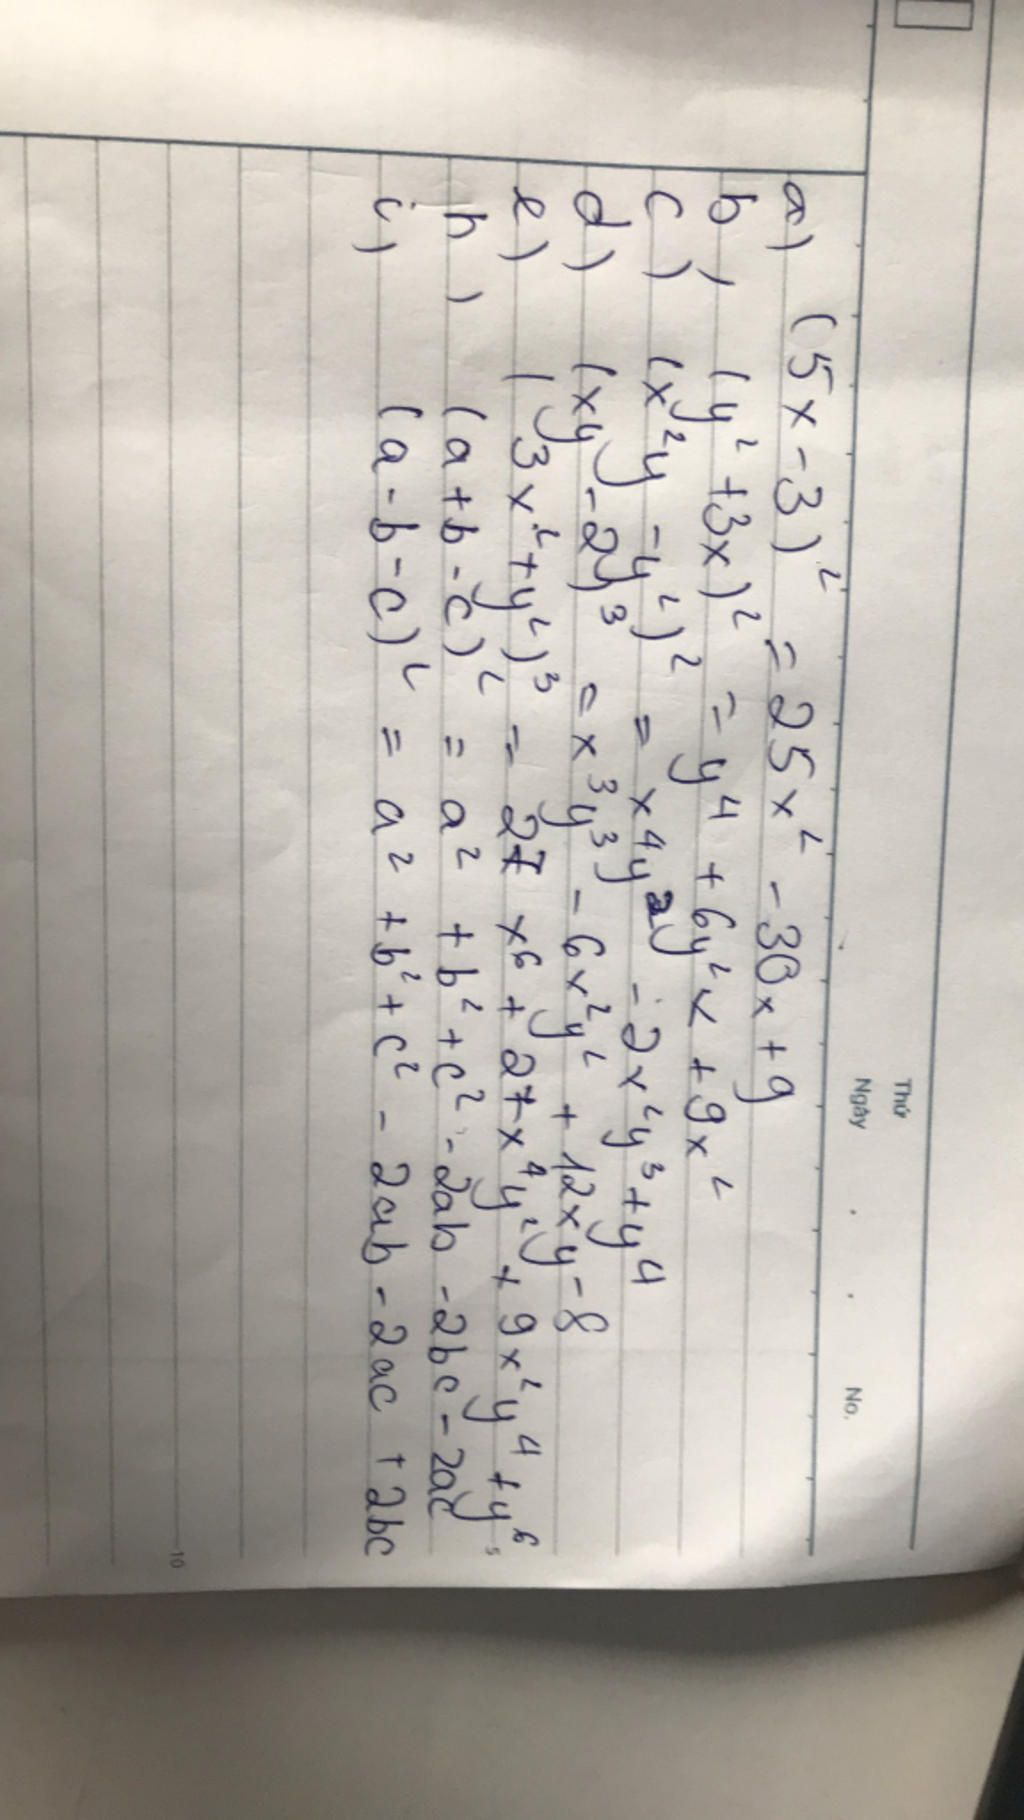 Thứ
Ngày . . No.
a) (5x-3)² = 25x² - 30x + 9
b) (y² + 3x)² = y⁴ + 6y²x + 9x²
c) (x²y - y²)² = x⁴y² - 2x²y³ + y⁴
d) (xy - 2)³ = x³y³ - 6x²y² + 12xy - 8
e) (3x² + y²)³ = 27x⁶ + 27x⁴y² + 9x²y⁴ + y⁶
5
h) (a+b-c)² = a² + b² + c² - 2ab - 2bc - 2ac
i) (a-b-c)² = a² + b² + c² - 2ab - 2ac + 2bc
10